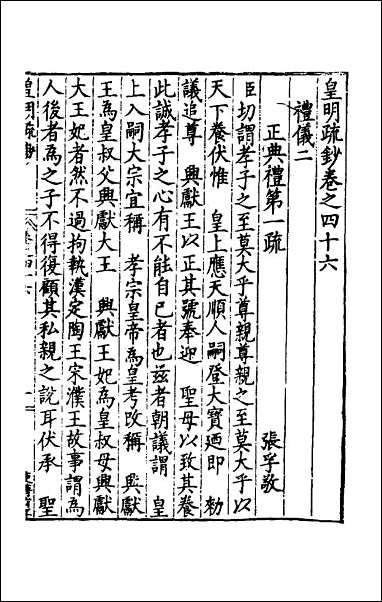 皇明疏鈔卷之四十六
禮儀二
正典禮第一疏 張孚敬
臣切謂孝子之至莫大乎尊親尊親之至莫大乎以
天下養伏惟 皇上應天順人嗣登大寶廼即 勑
議追尊 興獻王以正其號奉迎 聖母以致其養
此誠孝子之心有不能自已者也兹者朝議謂 皇
上入嗣大宗宜稱 孝宗皇帝為皇考改稱 興獻
王為皇叔父興獻大王 興獻王妃為皇叔母興獻
大王妃者然不過拘執漢定陶王宋濮王故事謂為
人後者為之子不得復顧其私親之說耳伏承 聖
皇明疏鈔